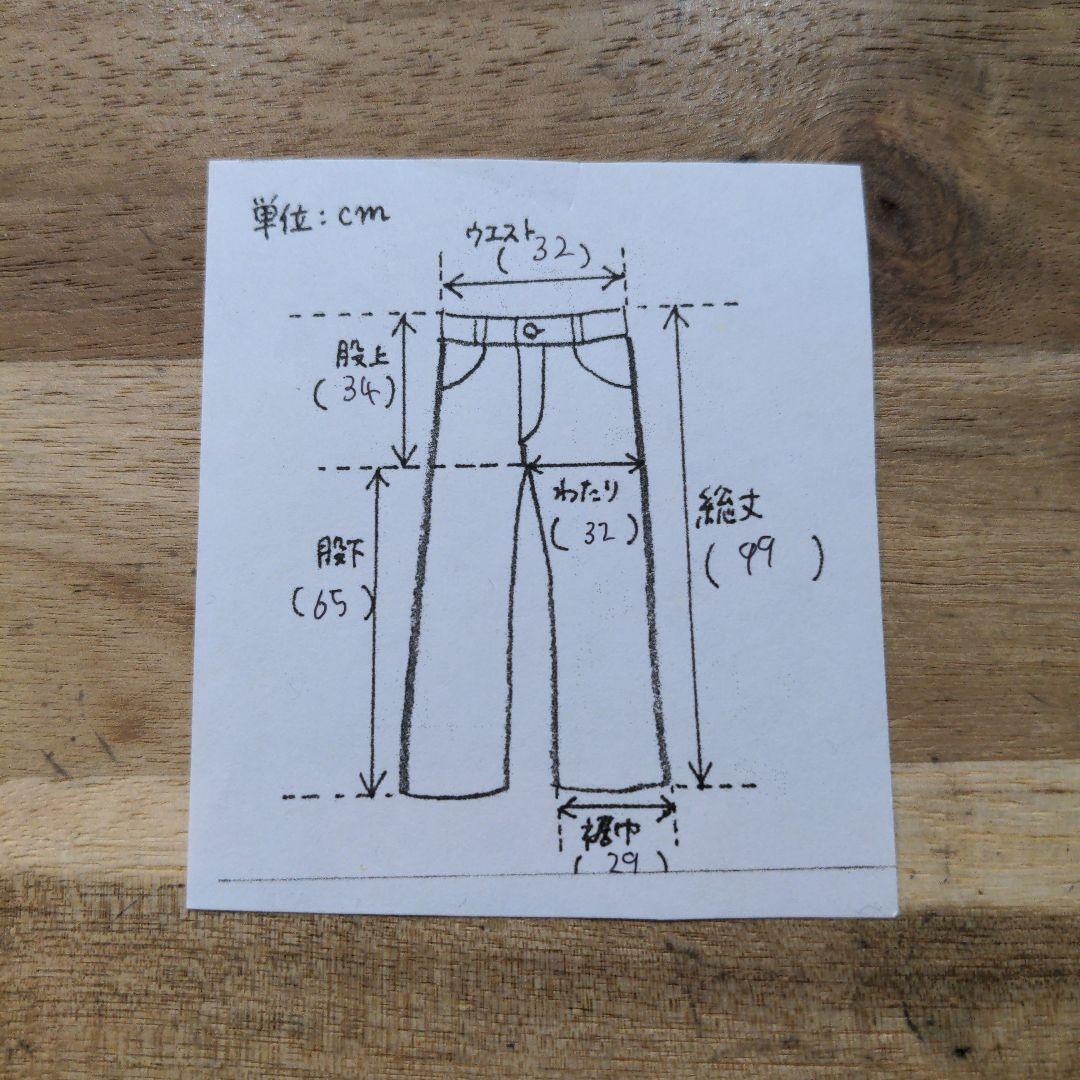 単位:cm
ウエスト
( 32 )
股上
(34)
わたり
( 32 )
総丈
( 99 )
股下
(65)
裾巾
( 29 )